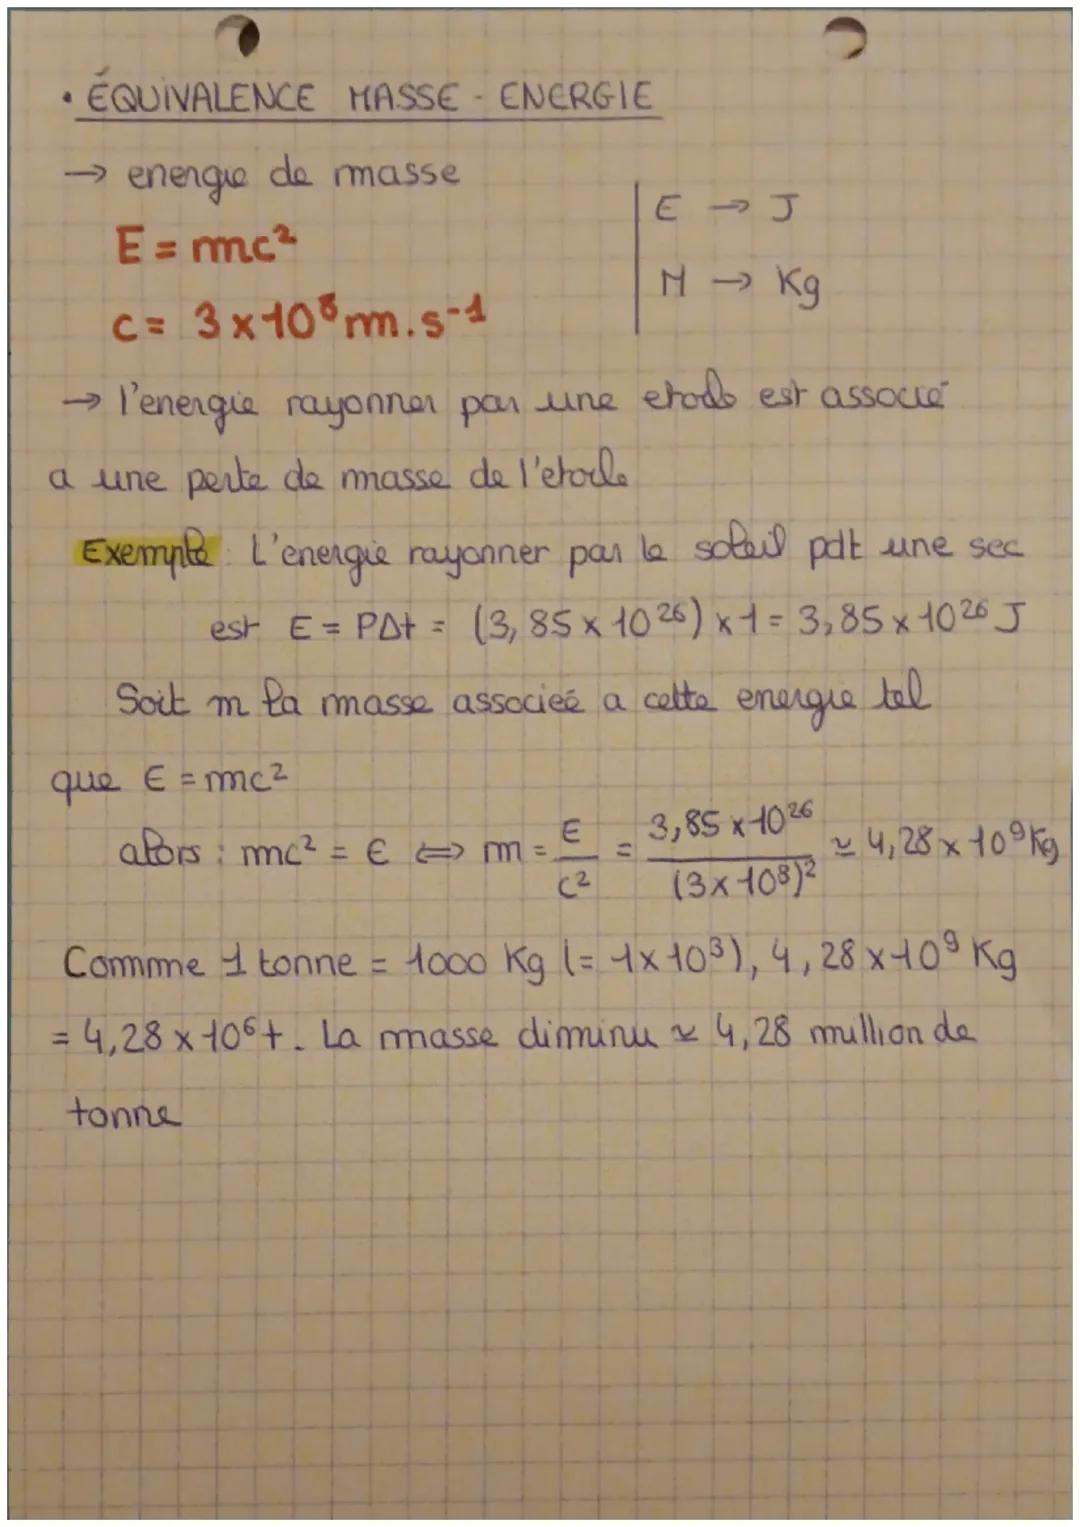 • ÉQUIVALENCE MASSE - ENERGIE
→ energie de masse
E → J
E = mc²
M → Kg
c = 3 x 10⁸ m.s⁻¹
→ l'energie rayonner par une etoile est associé
a une perte de masse de l'etoile
Exemple : L'energie rayonner par le soleil pdt une sec
est E = PΔt = (3,85 x 10²⁶) x 1 = 3,85 x 10²⁶ J
Soit m la masse associeé a cette energie tel
que E = mc²
alors : mc² = E ⟺ m = E/c² = 3,85 x 10²⁶/(3 x 10⁸)² ≃ 4,28 x 10⁹ Kg
Comme 1 tonne = 1000 Kg (= 1 x 10³), 4,28 x 10⁹ Kg
= 4,28 x 10⁶ t. La masse diminu ≃ 4,28 million de
tonne